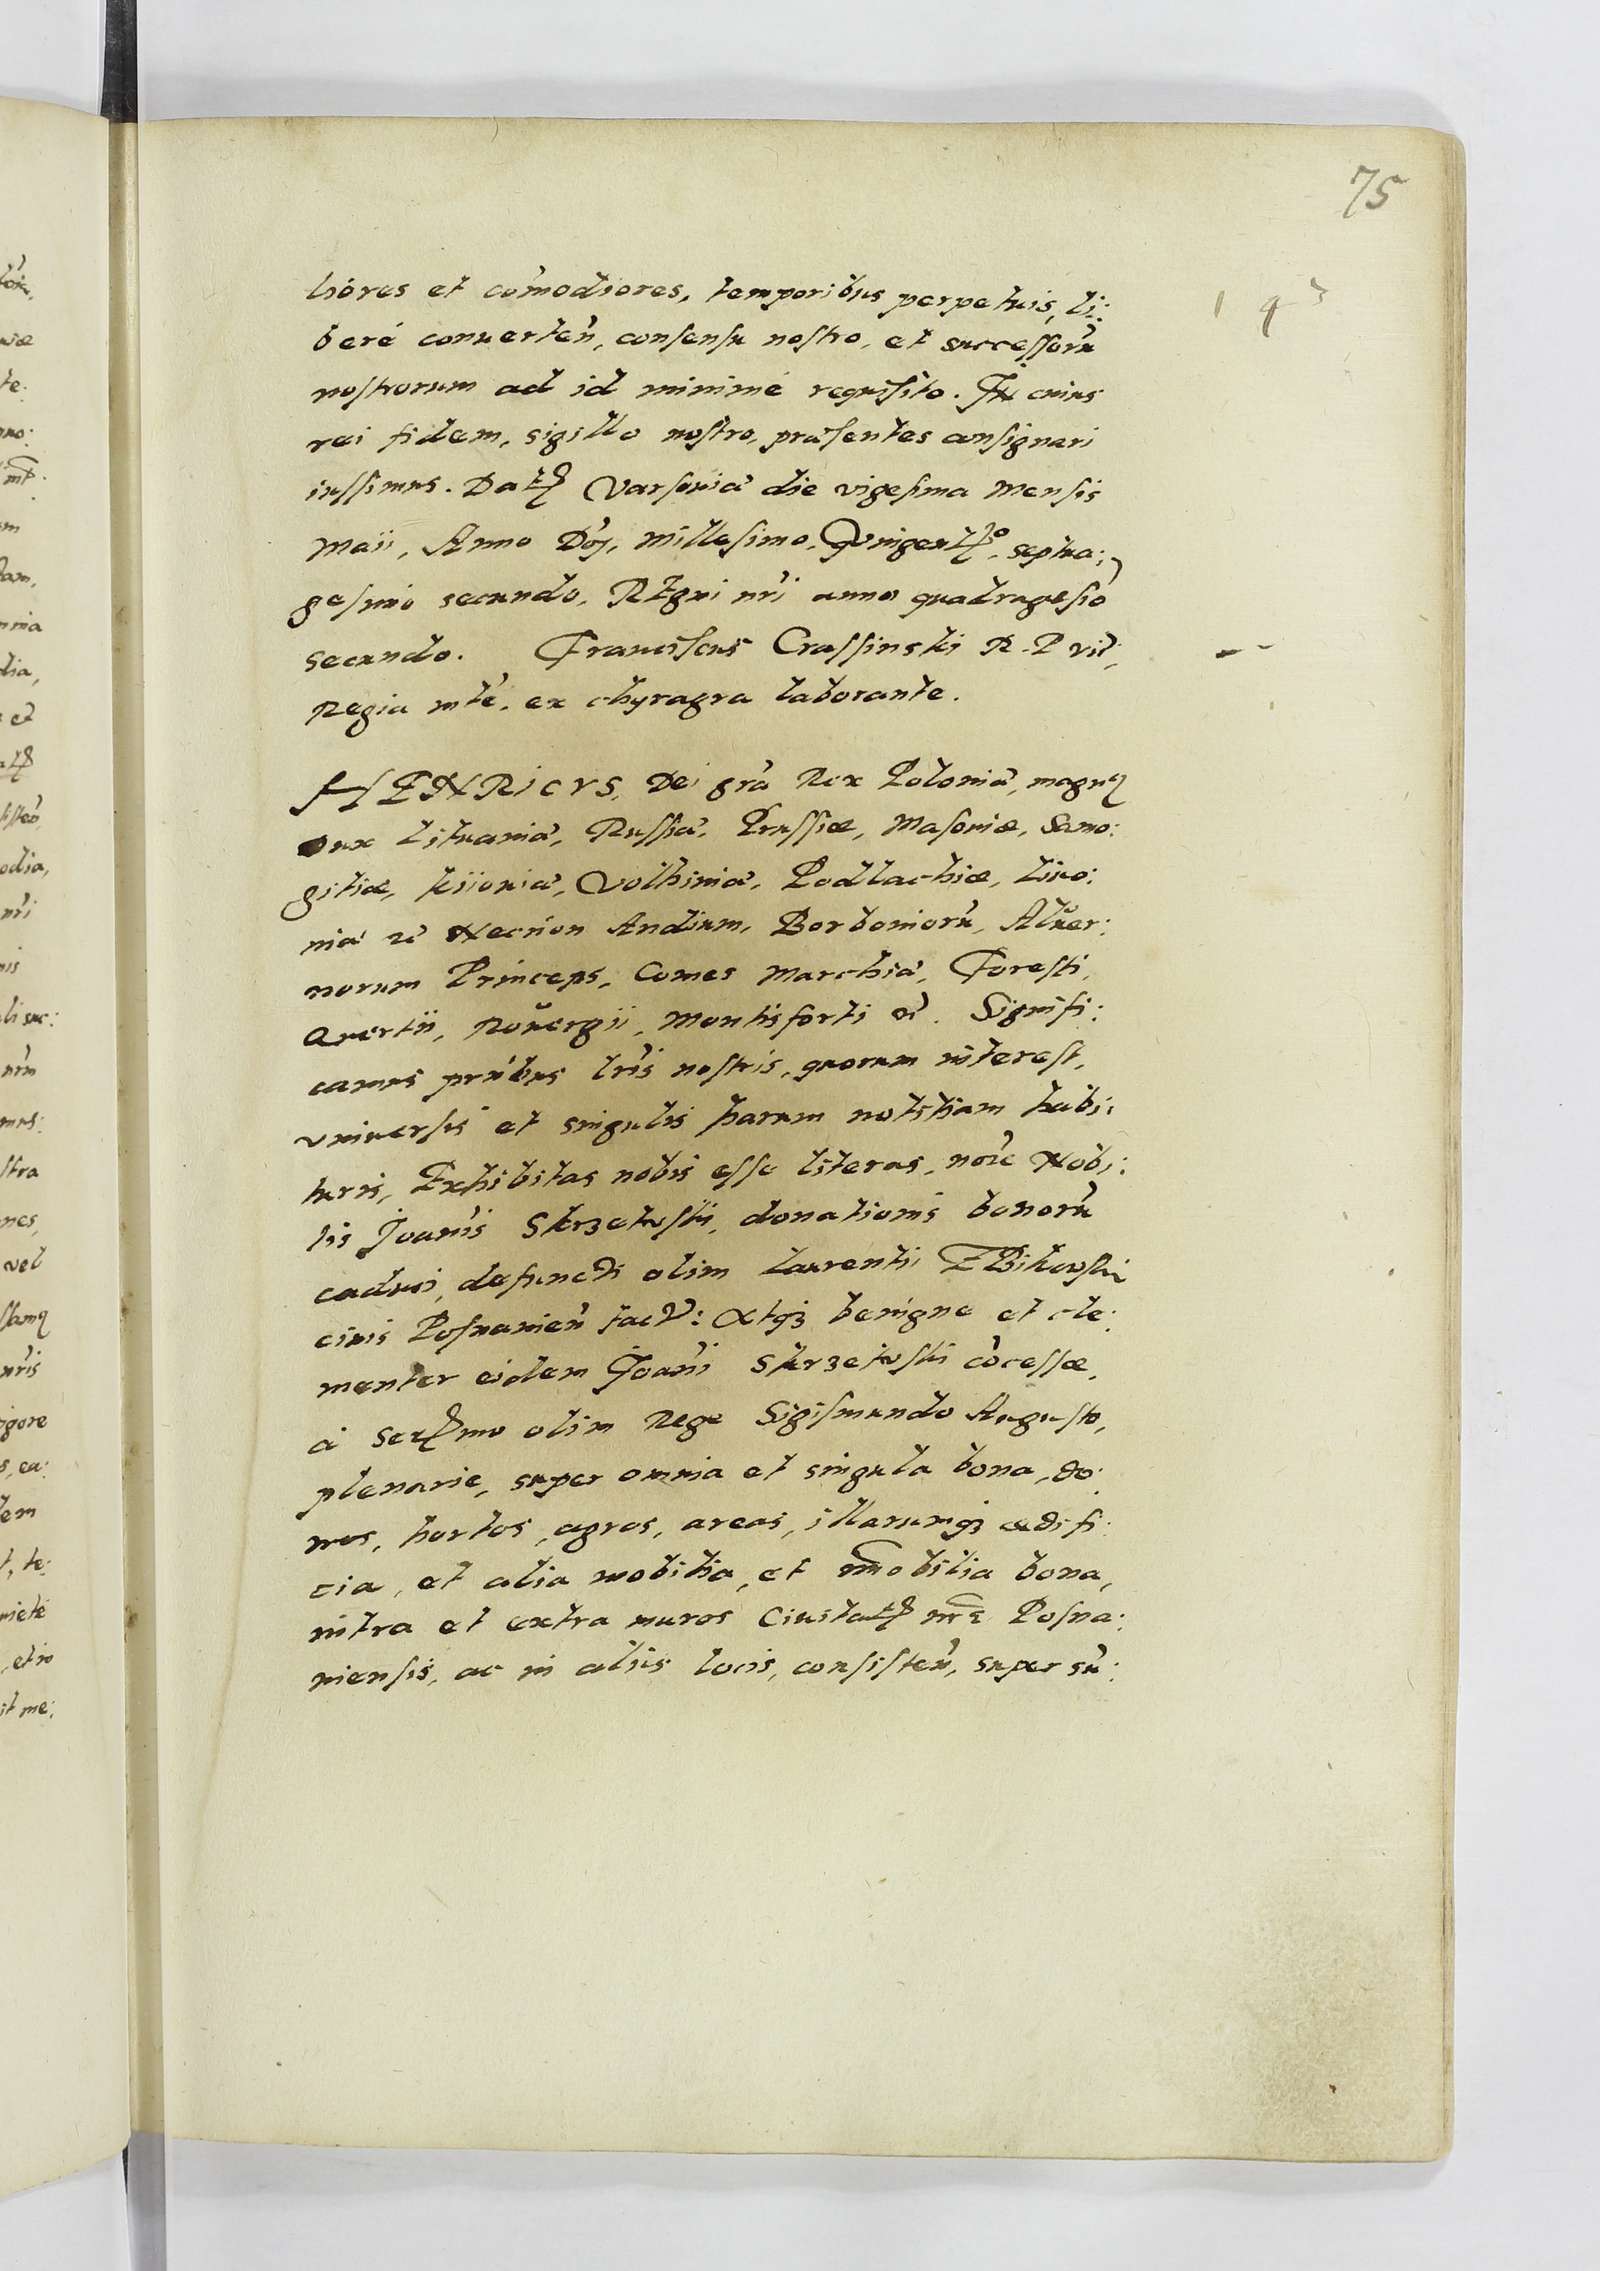 75
liores et com̃odiores, temporibus perpetuis, li:
beré conuerteñ, consensu nostro, et successorũ
nostrorum ad id minimé requisito. In cuius
rei fidem, sigillo nostro, præsentes consignari
iussimus. Dat Varsauiæ die vigesima mensis
Maii, Anno Dñj, millesimo, Quingentꝭo, septua:
gesimo secundo, REgni nr̃i anno quadragesĩo
secundo. Franciscus Crassinski R. P vič:
Regia mt̃e, ex chyragra laborante.
HENRicvs, Dei grã Rex Poloniæ, magnꝰ
Dux Lituaniæ, Russiæ, Prussiæ, Masouiæ, Samo:
gitiæ, kiiouiæ, Volhiniæ, Podlachiæ, liuo:
niæ zc̃ Necnon Andium, Borboniorũ, Aluer:
norum Princeps, Comes Marchiæ, Foresti,
Quertii, Rouergii, Montisforti zc̃. Signifi:
camus pñtibus lr̃is nostris, quorum interest,
vniuersis et singulis harum notitiam habi:
turis, Exhibitas nobis esse literas, noĩe Nobi:
lis Joañis Skrzetuski, donationis bonorũ
caduci, defuncti olim laurentii ZBikowski
ciuis Posnanieñ fact: Atqꝫ benigne et cle:
menter eidem Joañi Skrzetuski cõcessæ,
á Serꝭmo olim Rege Sigismundo Augusto,
plenarie, super omnia et singula bona, do:
mos, hortos, agros, areas, illarumqꝫ ædifi:
cia, et alia mobilia, et im̃obilia bona,
intra et extra muros Ciuitatꝭ nr̃æ Posna:
niensis, ac in aliis locis, consisteñ, super sũ: